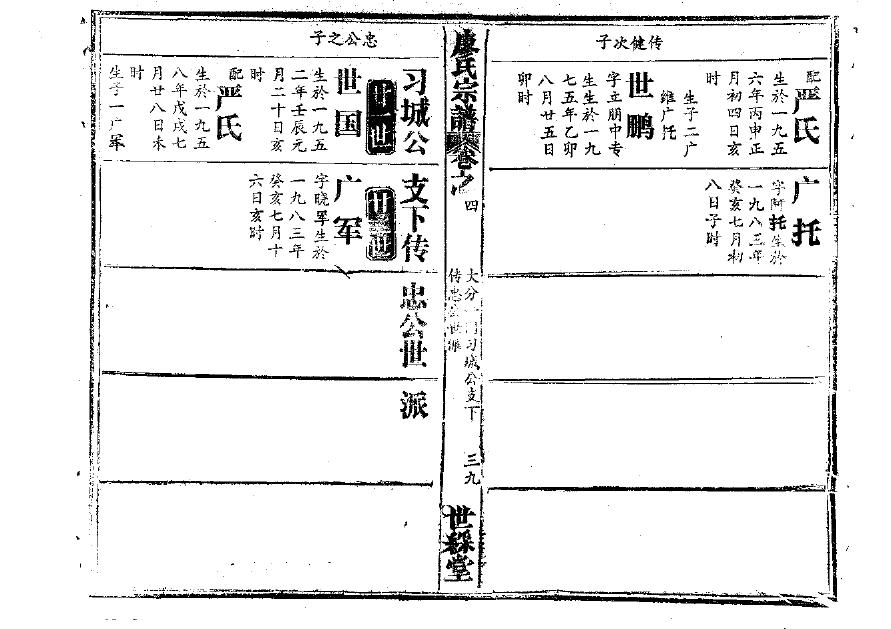 传健次子
配
严氏
生於一九五
六年丙申正
月初四日亥
时
生子二广
维广托
世鹏
字立朋中专
生生於一九
七五年乙卯
八月廿五日
卯时
广托
字阿托生於
一九八三年
癸亥七月初
八日子时
廖氏宗譜
卷之
四
大分一门习城公支下
传忠公世派
三九
世綵堂
忠公之子
习城公支下传忠公世派
廿一世
世国
生於一九五
二年壬辰元
月二十日亥
时
配
严氏
生於一九五
八年戊戌七
月廿八日未
时
生子一广军
廿二世
广军
字晓军生於
一九八三年
癸亥七月十
六日亥时